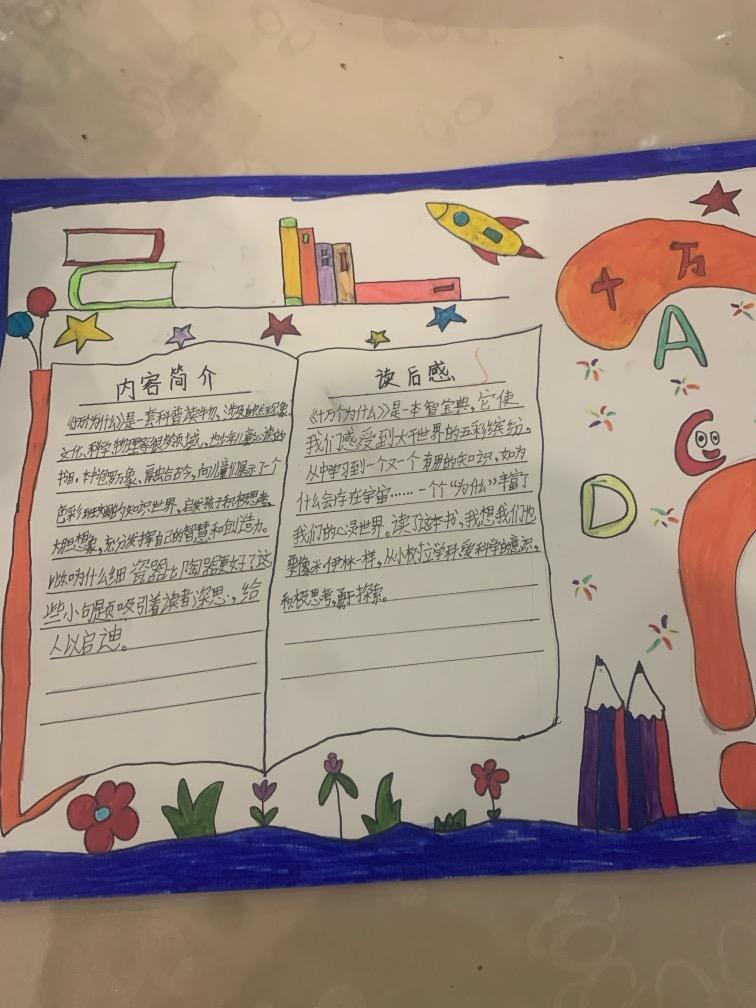 十万
A
C
D
内容简介
《十万个为什么》是一套科普读物，涉及自然现象
文化、科学、物理等很多领域，也少年儿童必读的
书目。书中包罗万象、融古今，向儿童们展示了一个
色彩斑斓的知识世界，启发孩子积极思考。
大胆想象，充分发挥自己的智慧和创造力。
比如为什么细瓷器比陶器更好？这
些小问题吸引着读者深思，给
人以启迪。
读后感
《十万个为什么》是一本智宝典，它使
我们感受到大千世界的五彩缤纷。
从中学习到一个又一个有用的知识，如为
什么会存在宇宙……一个个“为什么”丰富了
我们的心灵世界。读了这本书，我想我们也
要像米·伊林一样，从小树立学科学爱科学的意识，
积极思考，勇于探索。